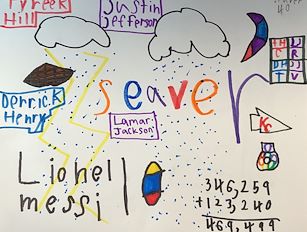 Tyreek
Hill
Justin
Jefferson
40
Seaver
Derrick
Henry
Lamar
Jackson
KC
Lionel
messi
346,259
+123,240
469,499